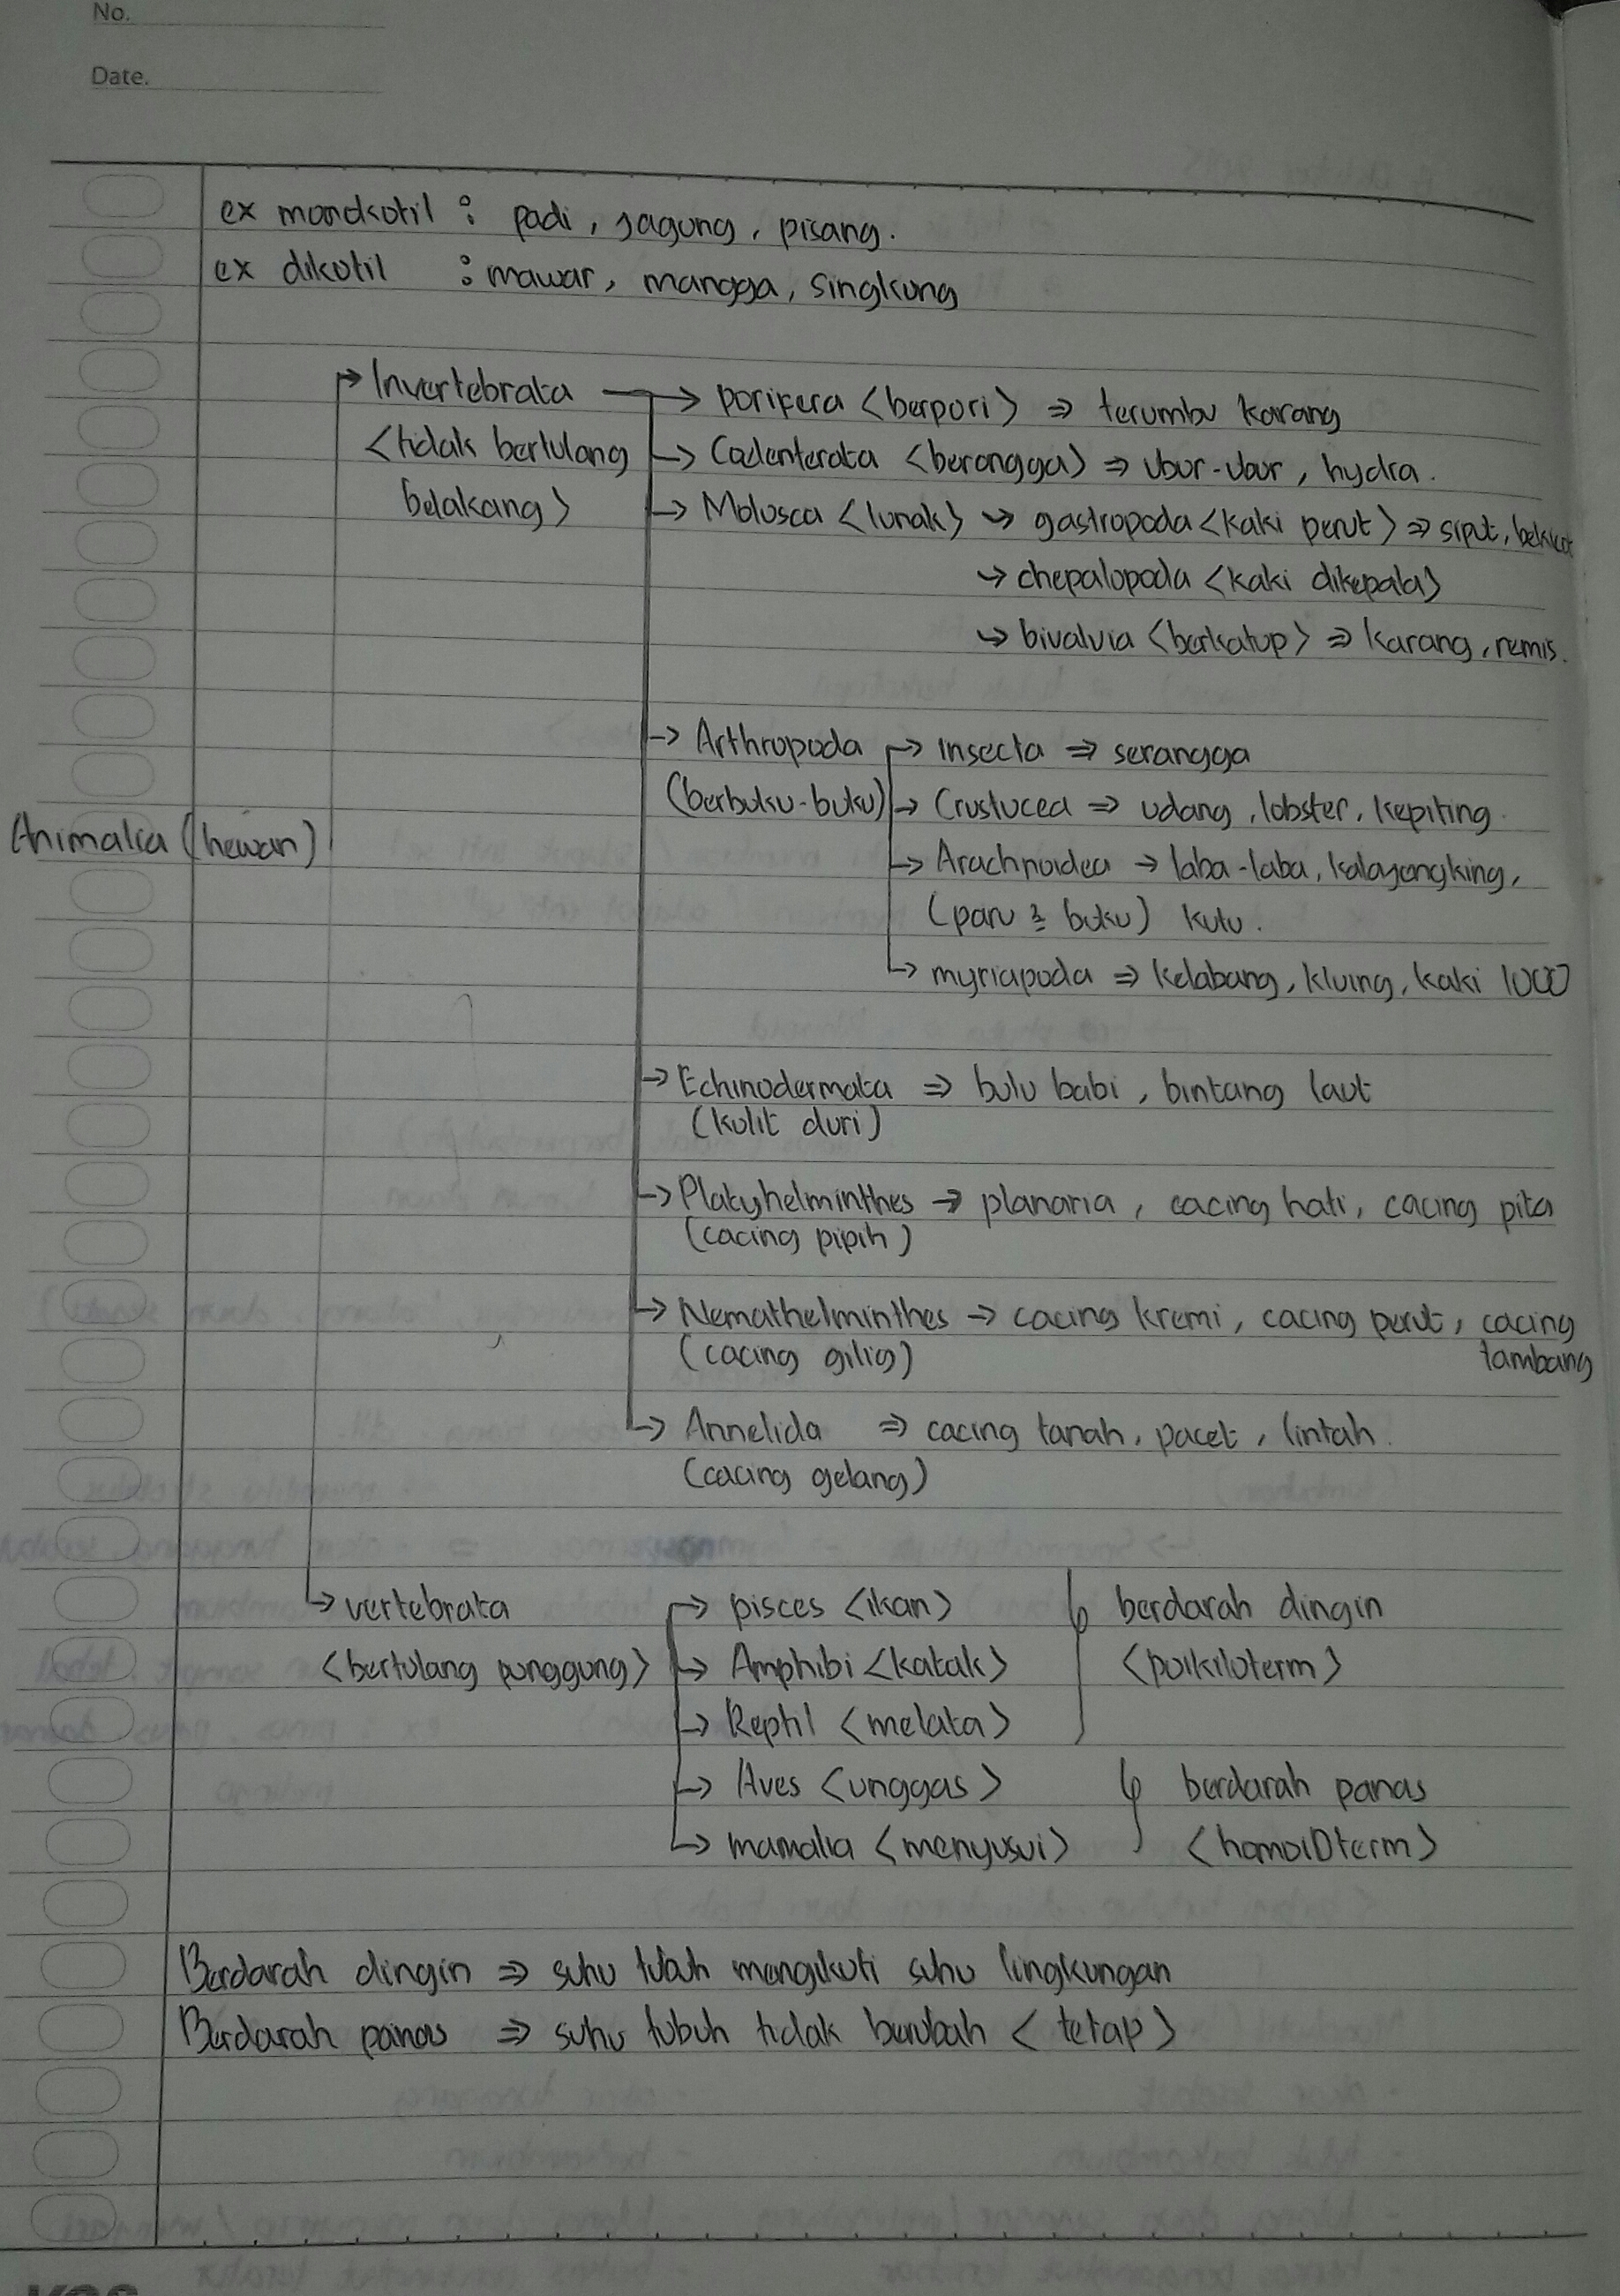 No.
Date.
ex monokotil : padi, jagung, pisang.
ex dikotil : mawar, mangga, singkong
Invertebrata → porifera <berpori> ⇒ terumbu karang
<tidak bertulang belakang>
→ Coelenterata <berongga> ⇒ ubur-ubur, hydra.
→ Molusca <lunak> → gastropoda <kaki perut> ⇒ siput, bekicot
→ chepalopoda <kaki dikepala>
→ bivalvia <berkatup> ⇒ karang, remis.
→ Arthropoda → insecta ⇒ serangga
(berbuku-buku) → Crustucea ⇒ udang, lobster, kepiting.
Animalia (hewan)
→ Arachnoidea → laba-laba, kalajengking,
(paru 2 buku) kutu.
→ myriapoda ⇒ kelabang, kluing, kaki 1000
→ Echinodermata ⇒ bulu babi, bintang laut
(kulit duri)
→ Platyhelminthes → planaria, cacing hati, cacing pita
(cacing pipih)
→ Nemathelminthes → cacing kremi, cacing perut, cacing
tambang
(cacing gilig)
→ Annelida ⇒ cacing tanah, pacet, lintah.
(cacing gelang)
→ vertebrata → pisces <ikan> berdarah dingin
<bertulang punggung> → Amphibi <katak> <poikiloterm>
→ Reptil <melata>
→ Aves <unggas> berdarah panas
→ mamalia <menyusui> <homoioterm>
Berdarah dingin ⇒ suhu tubuh mengikuti suhu lingkungan
Berdarah panas ⇒ suhu tubuh tidak berubah < tetap >